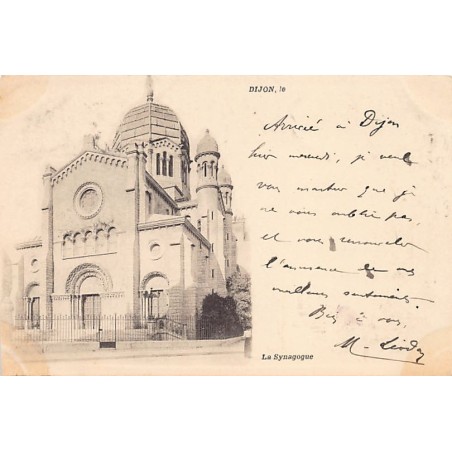 DIJON, le
Arrivé à Dijon
hier mercredi, je veux
vous montrer que je
ne vous oublie pas,
et vous renouveler
l'assurance de mes
meilleurs sentiments.
Bien à vous,
M.
La Synagogue